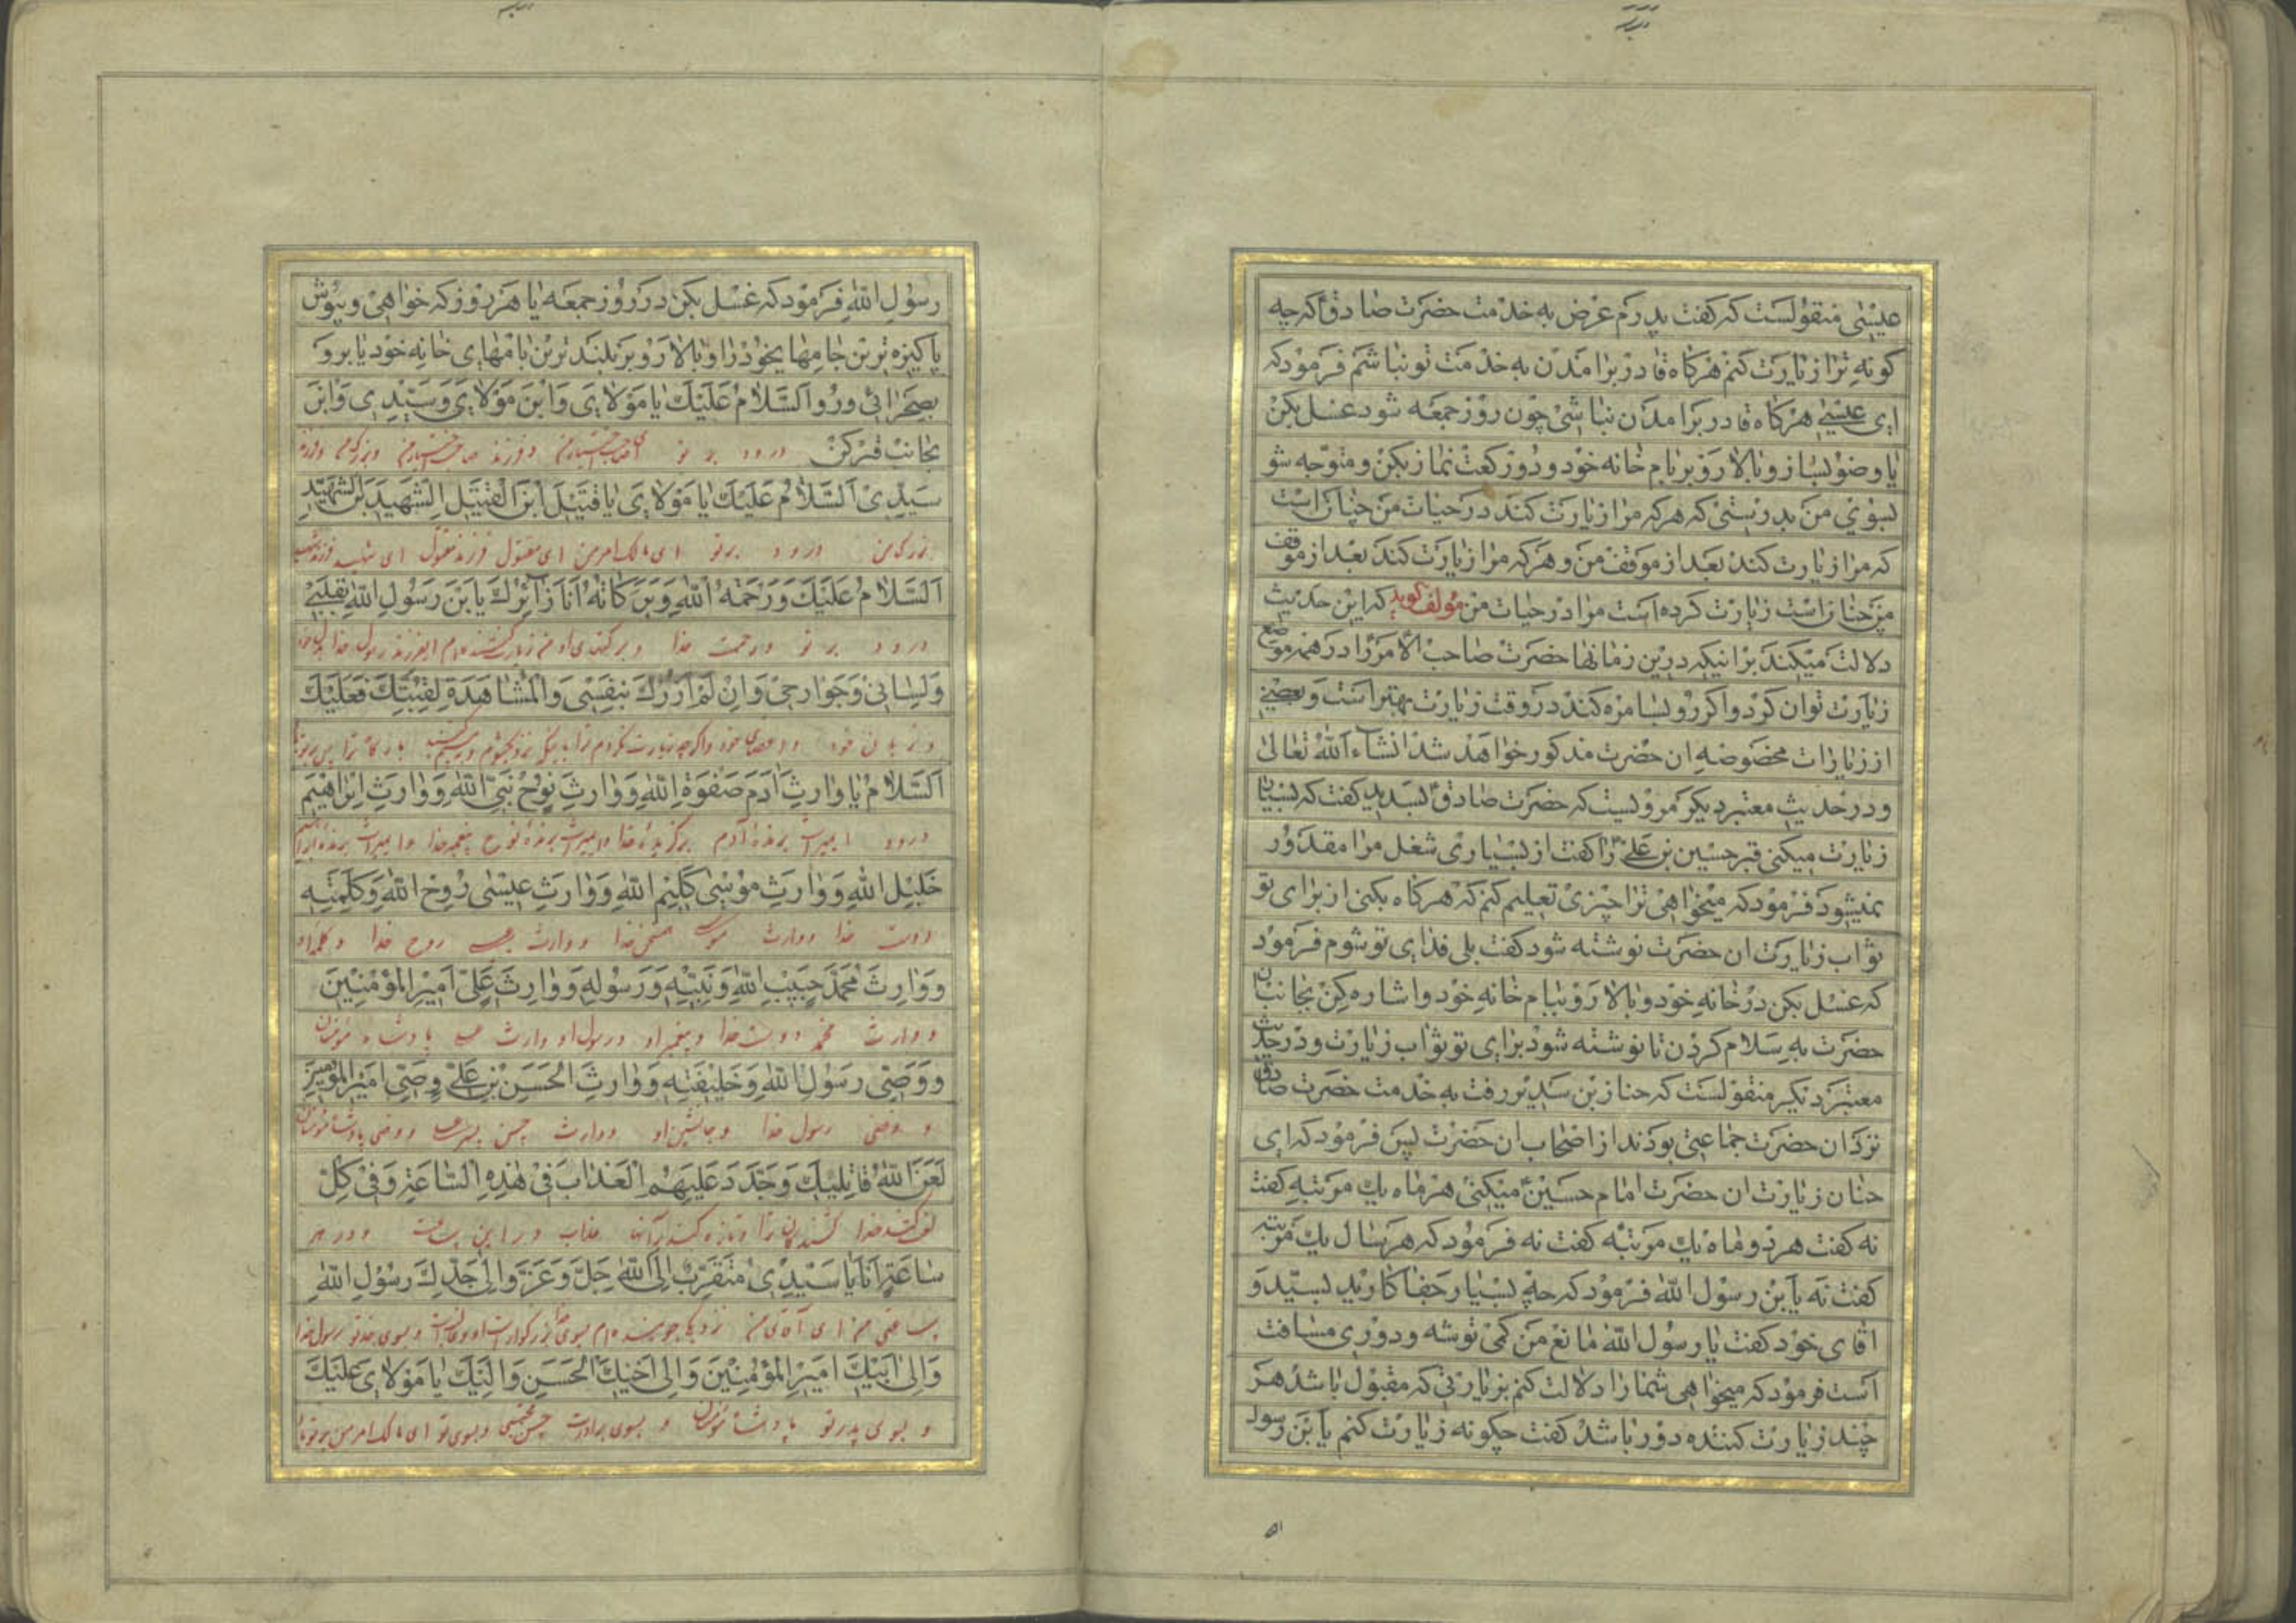 عیسٰی منقولست که کفت پدرم عرض به خدمت حضرت صادقؑ که چه
کونه ترا زیارت کنم هرکاه قادر برامدن به خدمت تو نباشم فرمود که
ای عیسٰی هرکاه قادر برامدن نباشی چون روز جمعه شود غسل بکن
یا وضو بساز و بالا رو بر بام خانه خود و دو رکعت نماز بکن و متوجه شو
بسوی من بدرستی که هرکه مرا زیارت کند در حیات من چنان است
که مرا زیارت کند بعد از موقف من و هرکه مرا زیارت کند بعد از موقف
من چنانست زیارت کرده است مرا در حیات من مؤلف کوید که این حدیث
دلالت میکند برانیکه درین زمانها حضرت صاحب الامر را در همه موضع
زیارت توان کرد و اکر رو بسامره کند در وقت زیارت بهتر است و بعضی
از زیارات مخصوصه ان حضرت مذکور خواهد شد انشاء الله تعالٰی
و در حدیث معتبر دیکر مرویست که حضرت صادقؑ بسدیر کفت که بسیار
زیارت میکنی قبر حسین بن علیؑ را کفت از بسیاری شغل مرا مقدور
نمیشود فرمود که میخواهی ترا چیزی تعلیم کنم که هرکاه بکنی از برای تو
ثواب زیارت ان حضرت نوشته شود کفت بلی فدای تو شوم فرمود
که غسل بکن در خانه خود و بالا رو ببام خانه خود و اشاره کن بجانب ان
حضرت به سلام کردن تا نوشته شود برای تو ثواب زیارت و در حدیث
معتبر دیکر منقولست که حنان بن سدیر رفت به خدمت حضرت صادق
نزد ان حضرت جماعتی بودند از اصحاب ان حضرت پس فرمود که ای
حنان زیارت ان حضرت امام حسینؑ میکنی هر ماه یک مرتبه کفت
نه کفت هر دو ماه یک مرتبه کفت نه فرمود که هر سال یک مرتبه
کفت نه یابن رسول الله فرمود که چه بسیار جفا کارید بسید و
اقای خود کفت یا رسول الله مانع من کمی توشه و دوری مسافت
است فرمود که میخواهی شما را دلالت کنم بزیارتی که مقبول باشد هر
چند زیارت کننده دور باشد کفت چکونه زیارت کنم یابن رسول
رسول الله فرمود که غسل بکن در روز جمعه یا هر روز که خواهی و بپوش
پاکیزه ترین جامهای خود را و بالا رو بر بلند ترین بامهای خانه خود یا برو
بصحرائی و رو اَلسَّلامُ عَلَیْكَ یا مَوْلایَ وَابْنَ مَوْلایَ وَسَیِّدی وَابْنَ
بجانب قبر کن درود بر تو ای صاحب اختیار من و فرزند صاحب اختیار من و بزرک من و فرزند
سَیِّدی اَلسَّلامُ عَلَیْكَ یا مَوْلایَ یا قَتیلَ ابْنَ الْقَتیلِ الشَّهیدَ بْنَ الشَّهیدِ
بزرک من درود بر تو ای مالک امر من ای مقتول فرزند مقتول ای شهید فرزند شهید
اَلسَّلامُ عَلَیْكَ وَرَحْمَةُ اللهِ وَبَرَكاتُهُ اَنَا زائِرُكَ یَابْنَ رَسُولِ اللهِ بِقَلْبی
درود بر تو و رحمت خدا و برکتهای او من زیارت کننده توام ای فرزند رسول خدا بدل خود
وَلِسانی وَجَوارِحی وَاِنْ لَمْ اَزُرْكَ بِنَفْسی وَالْمُشاهَدَةِ لِقُبَّتِكَ فَعَلَیْكَ
و زبان خود و اعضای خود و اکر چه زیارت نکردم ترا
اَلسَّلامُ یا وارِثَ آدَمَ صَفْوَةِ اللهِ وَوارِثَ نُوحٍ نَبِیِّ اللهِ وَوارِثَ اِبْراهیمَ
درود ای میراث برنده آدم برکزیده خدا و میراث برنده نوح پیغمبر خدا و میراث برنده ابراهیم
خَلیلِ اللهِ وَوارِثَ مُوسٰی كَلیمِ اللهِ وَوارِثَ عیسٰی رُوحِ اللهِ وَكَلِمَتِهِ
دوست خدا و وارث موسی خدا و وارث عیسی روح خدا و کلمه او
وَوارِثَ مُحَمَّدٍ حَبیبِ اللهِ وَنَبِیِّهِ وَرَسُولِهِ وَوارِثَ عَلِیٍّ اَمیرِ الْمُؤْمِنینَ
و وارث محمد دوست خدا و پیغمبر او و رسول او و وارث علی پادشاه مؤمنان
وَوَصِیِّ رَسُولِ اللهِ وَخَلیفَتِهِ وَوارِثَ الْحَسَنِ بْنِ عَلِیٍّ وَصِیِّ اَمیرِ الْمُؤْمِنینَ
و وصی رسول خدا و جانشین او و وارث حسن پسر علی و وصی پادشاه مؤمنان
لَعَنَ اللهُ قاتِلیكَ وَجَدَّدَ عَلَیْهِمُ الْعَذابَ فی هٰذِهِ السّاعَةِ وَفی كُلِّ
لعن کند خدا کشندکان ترا و تازه کند بر آنها عذاب در این ساعت و در هر
ساعَةٍ اَنَا یا سَیِّدی مُتَقَرِّبٌ اِلَی اللهِ جَلَّ وَعَزَّ وَاِلٰی جَدِّكَ رَسُولِ اللهِ
ساعتی من ای آقای من نزدیکی جوینده ام بسوی خدا و بسوی جد تو رسول خدا
وَاِلٰی اَبیكَ اَمیرِ الْمُؤْمِنینَ وَاِلٰی اَخیكَ الْحَسَنِ وَاِلَیْكَ یا مَوْلایَ عَلَیْكَ
و بسوی پدر تو پادشاه مؤمنان و بسوی برادرت حسن مجتبی و بسوی تو ای مالک امر من بر تو باد
۵۱